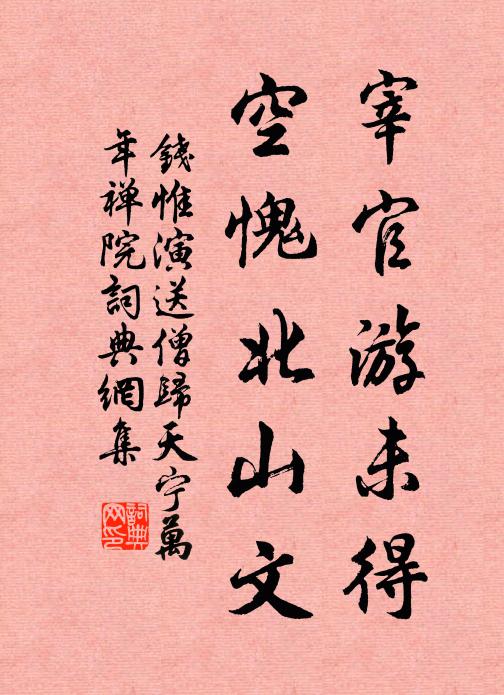 宰官游未得
空愧北山文
錢惟演送僧歸天宁萬
年禅院詞典網集
詞典
网印